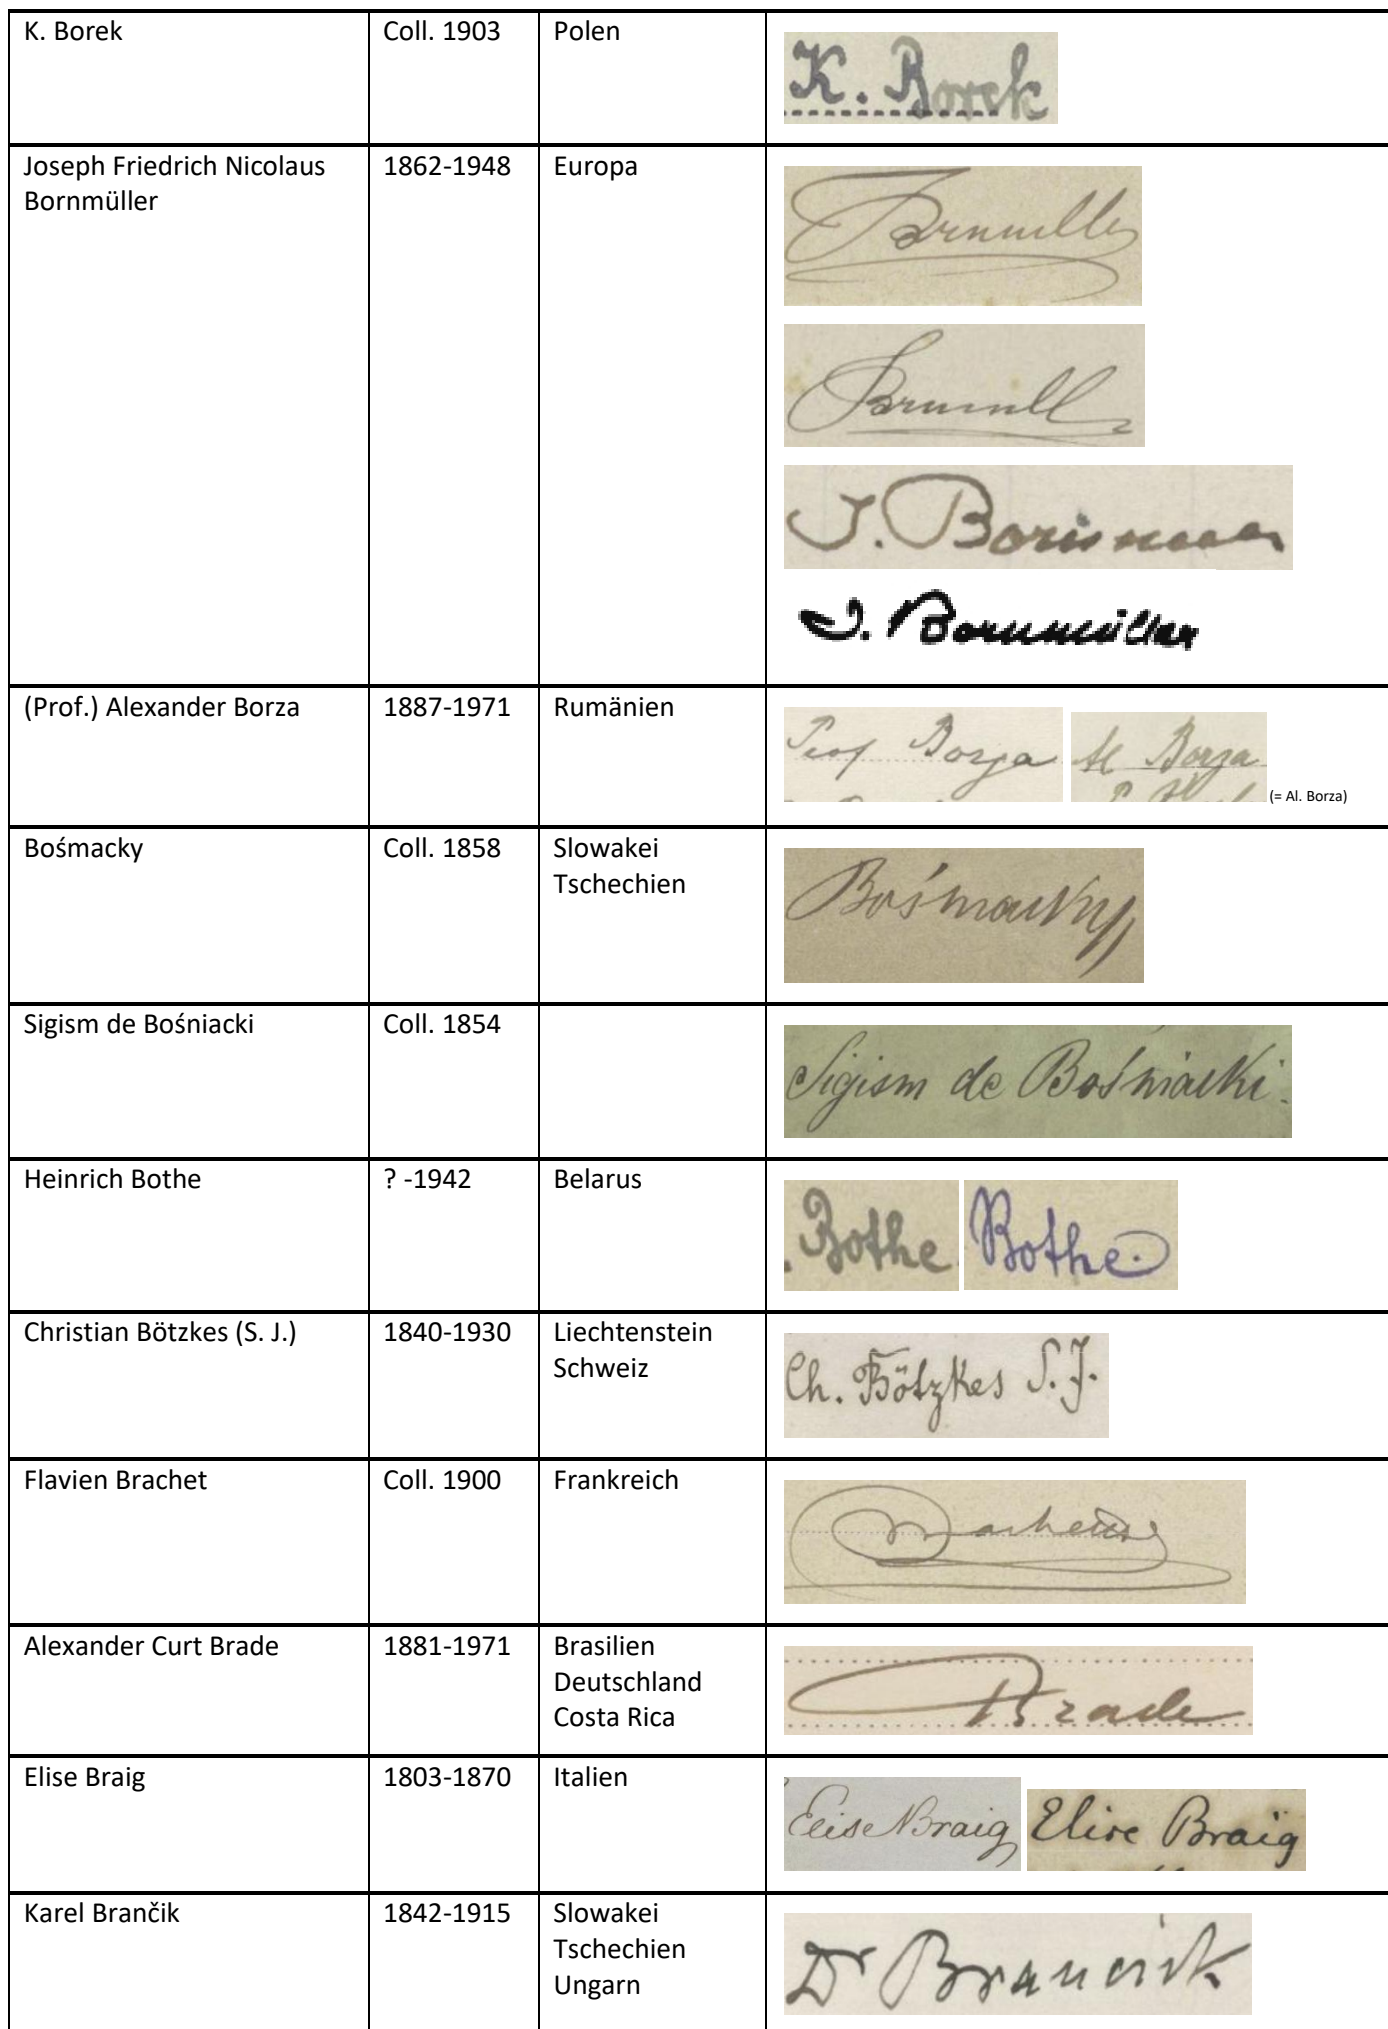 K. Borek Coll. 1903 Polen K. Borek
Joseph Friedrich Nicolaus 1862-1948 Europa
Bornmüller
Brnmülle
Brnmüll
J. Bornmüller
(Prof.) Alexander Borza 1887-1971 Rumänien Prof Borza Al Borza (= Al. Borza)
Bośmacky Coll. 1858 Slowakei Bośmacky
Tschechien
Sigism de Bośniacki Coll. 1854 Sigism de Bośniacki.
Heinrich Bothe ? -1942 Belarus Bothe. Bothe.
Christian Bötzkes (S. J.) 1840-1930 Liechtenstein Ch. Bötzkes S. J.
Schweiz
Flavien Brachet Coll. 1900 Frankreich
Alexander Curt Brade 1881-1971 Brasilien Brade
Deutschland
Costa Rica
Elise Braig 1803-1870 Italien Elise Braig Elise Braig
Karel Brančik 1842-1915 Slowakei Dr Brancsik
Tschechien
Ungarn